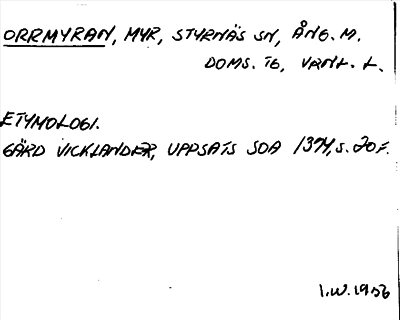 ORRMYRAN, MYR, STYRNÄS SN, ÅNG. M.
DOMS. TG, VRNL. L.
ETYMOLOGI.
GÄRD VICKLANDER, UPPSATS SOA 1374, S. 20 F.
I.W. 1956